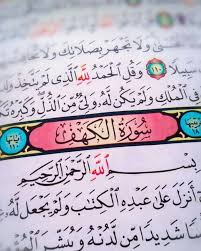 وَلَا تَجْهَرْ بِصَلَاتِكَ وَلَا
سَبِيلًا ١١٠ وَقُلِ الْحَمْدُ لِلَّهِ الَّذِي لَمْ يَتَّخِذْ وَلَدًا
فِي الْمُلْكِ وَلَمْ يَكُن لَّهُ وَلِيٌّ مِّنَ الذُّلِّ وَكَبِّرْهُ
سُورَةُ الْكَهْفِ
بِسْمِ اللَّهِ الرَّحْمَٰنِ الرَّحِيمِ
أَنزَلَ عَلَىٰ عَبْدِهِ الْكِتَابَ وَلَمْ يَجْعَل لَّهُ
شَدِيدًا مِّن لَّدُنْهُ وَيُبَشِّرَ الْمُؤْ